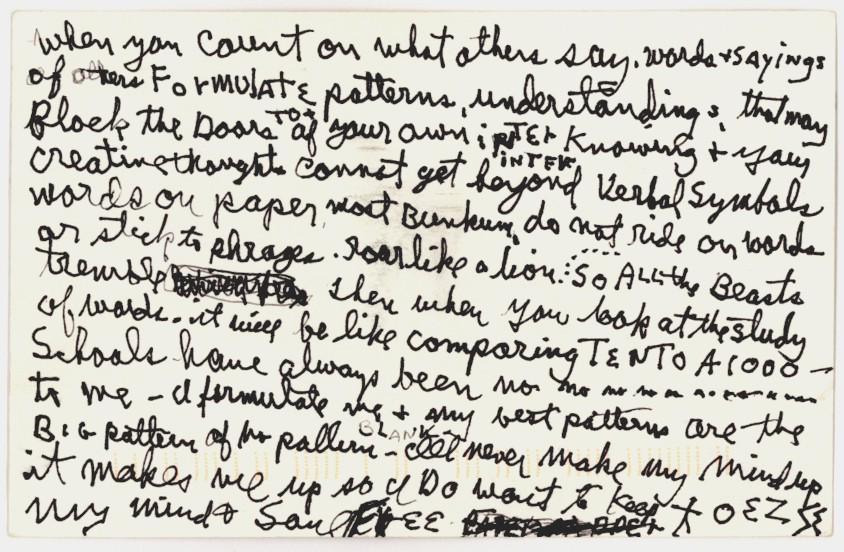 when you count on what others say. words + sayings
of others FORMULATE patterns, understandings, that may
Block the Doors TO of your own inTER Knowing + your
creating thought cannot get beyond INTER Verbal Symbols
words on paper, most Bunkum, do not ride on words
or stick to phrases. roar like a lion. So ALL the Beasts
tremble then when you look at the study
of words.. it will be like comparing TEN TO A 1000 –
Schools have always been no no no no no
to me – I formulate me + my best patterns are the
BIG pattern of no pattern – BLANK I'll never make my mind up
it makes me up so I Do want to keep
my mind + Soul FREE